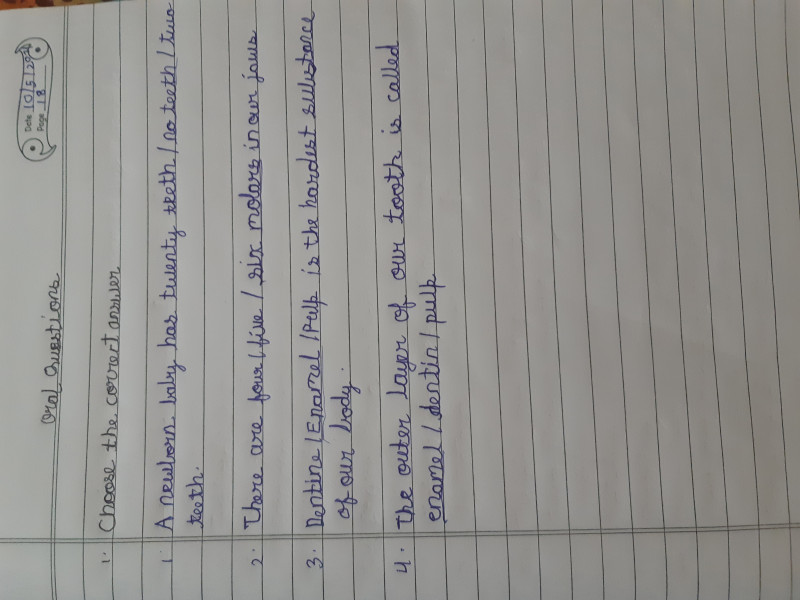 Date 10/5/2024
Page 18
Oral Questions
1. Choose the correct answer
1 A newborn baby has twenty teeth / no teeth / two
teeth.
2. There are four / five / six molars in our jaws
3. Dentine / Enamel / Pulp is the hardest substance
of our body.
4. The outer layer of our tooth is called
enamel / dentin / pulp